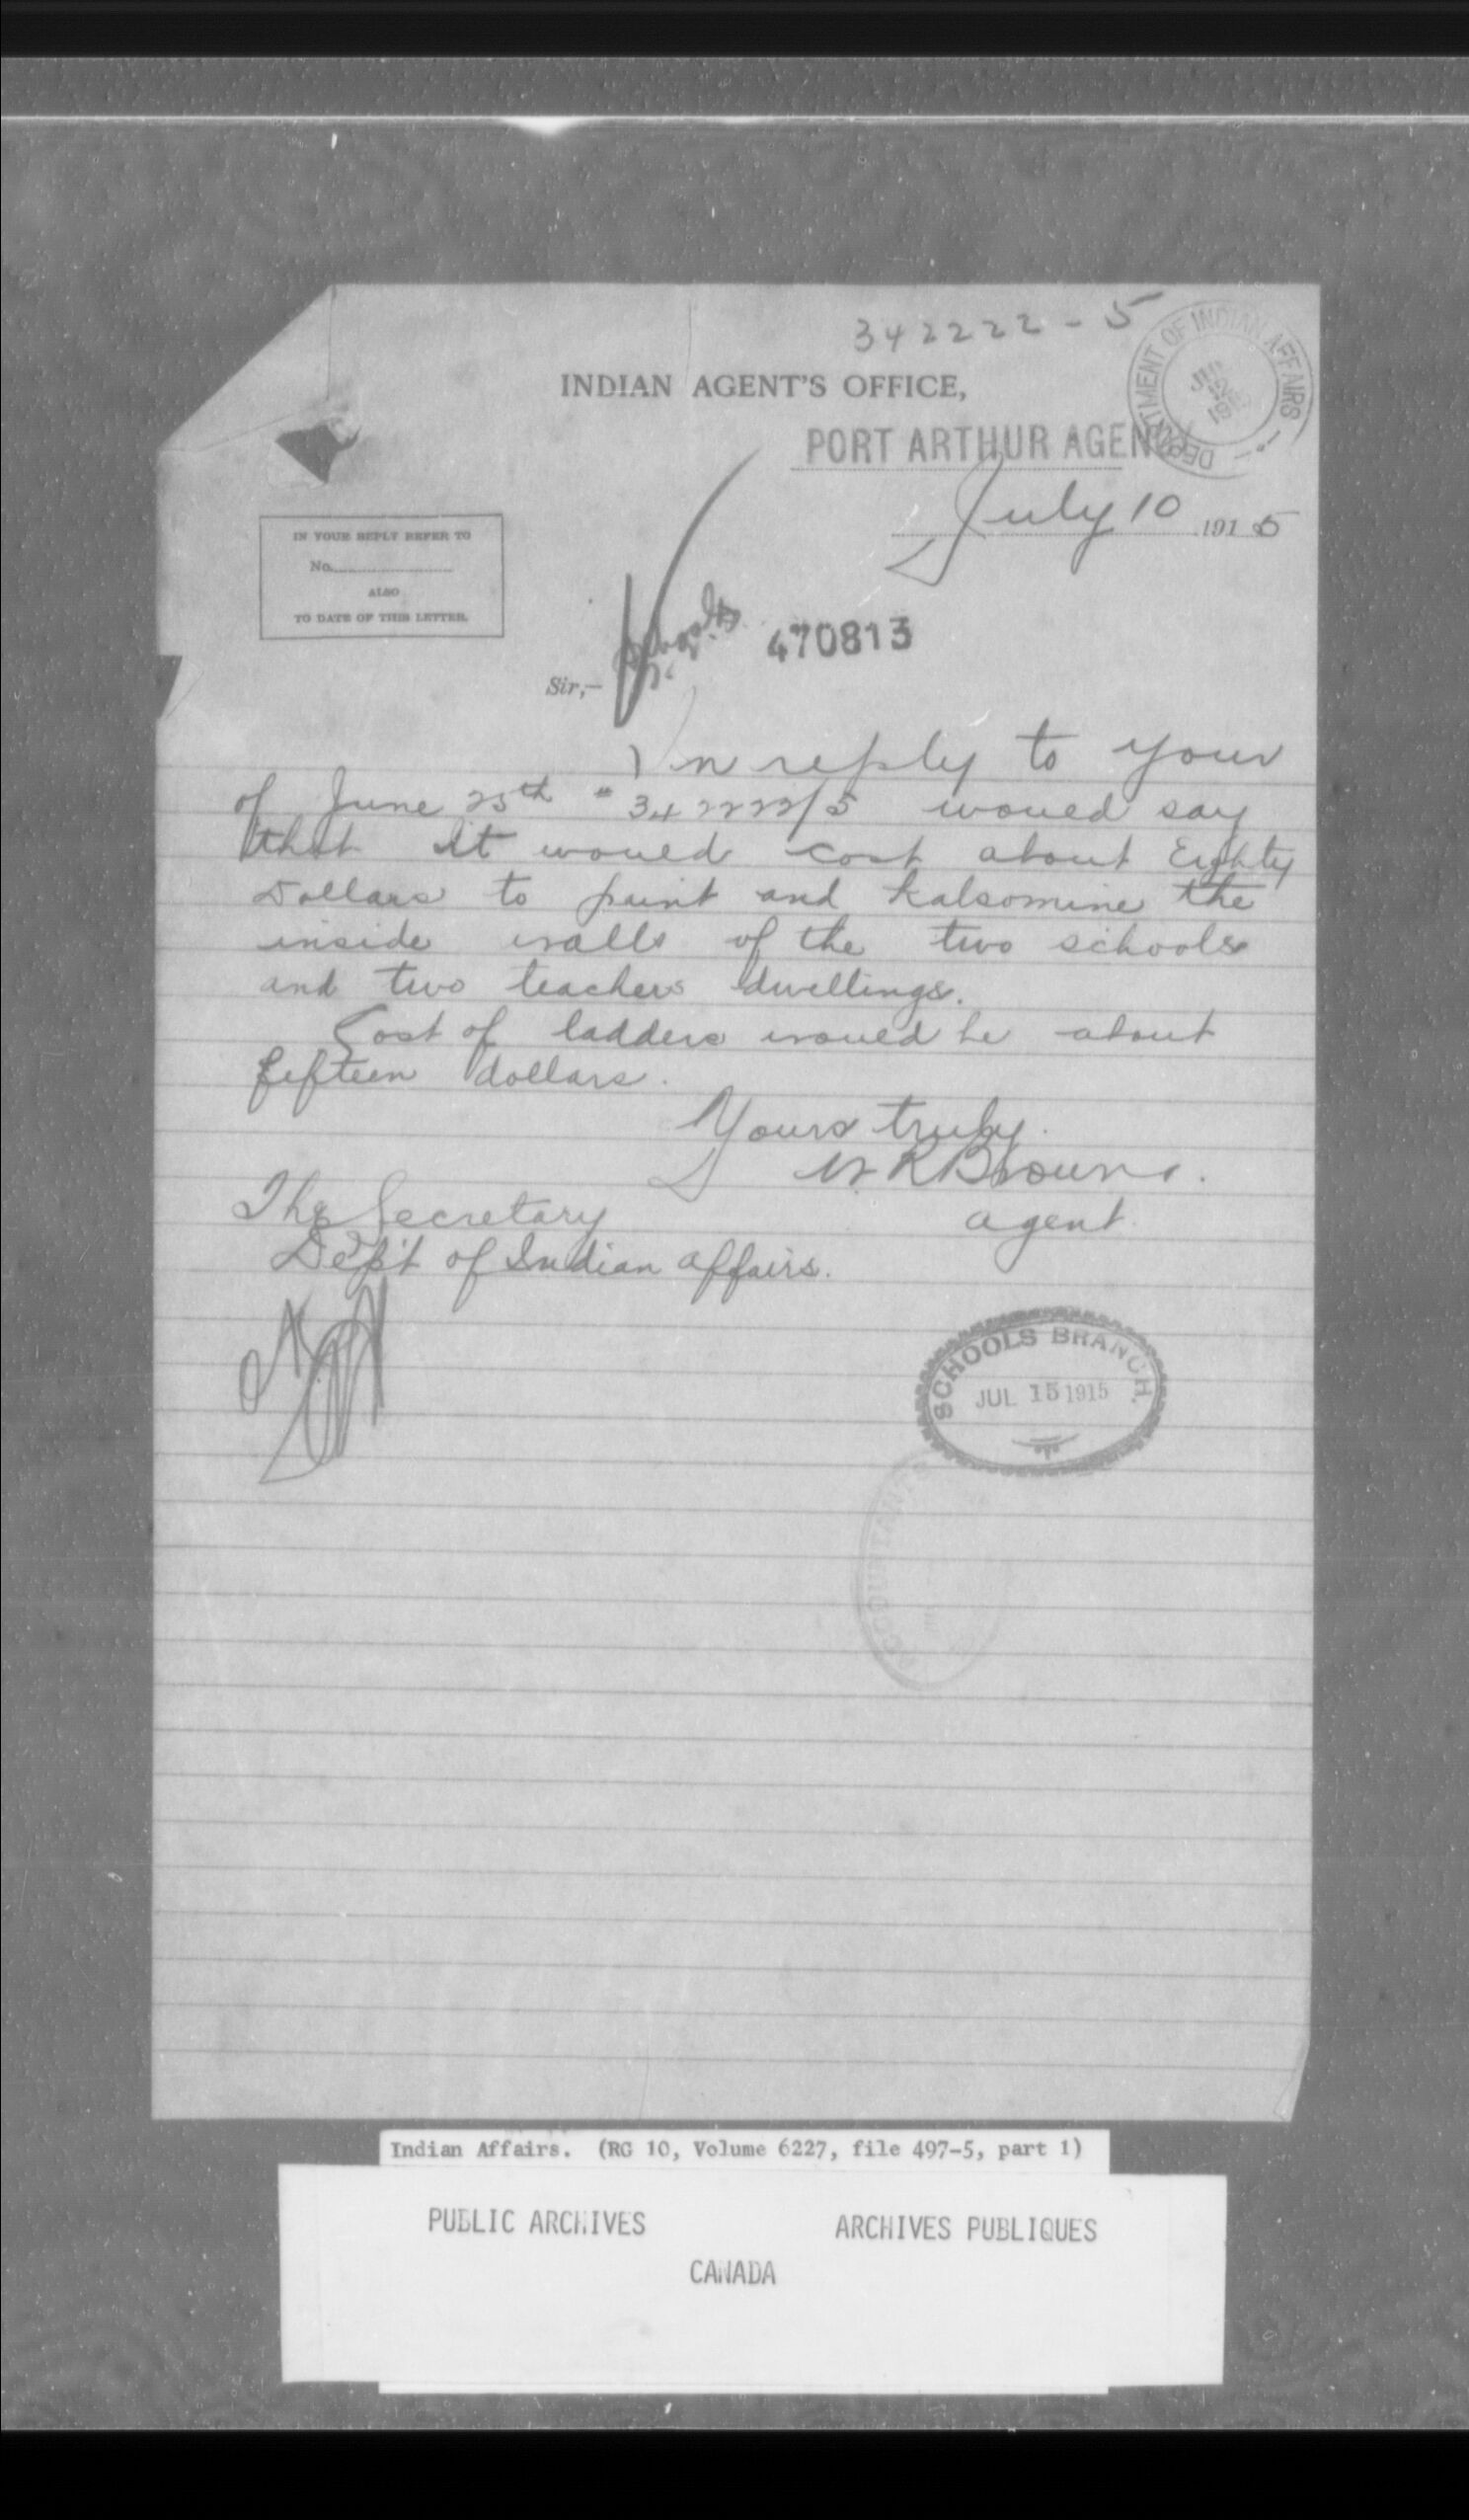 342222-5
INDIAN AGENT'S OFFICE,
DEPARTMENT OF INDIAN AFFAIRS
PORT ARTHUR AGENCY
July 10 1915
IN YOUR REPLY REFER TO
No.
ALSO
TO DATE OF THIS LETTER.
Schools
470813
Sir,—
In reply to your
of June 25th # 342222/5 would say
that it would cost about Eighty
Dollars to paint and kalsomine the
inside walls of the two schools
and two teachers dwellings.
Cost of ladders would be about
fifteen dollars.
Yours truly.
W R Brown.
The Secretary
agent.
Dep't of Indian affairs.
SCHOOLS BRANCH.
JUL 15 1915
Indian Affairs. (RG 10, Volume 6227, file 497-5, part 1)
PUBLIC ARCHIVES
ARCHIVES PUBLIQUES
CANADA